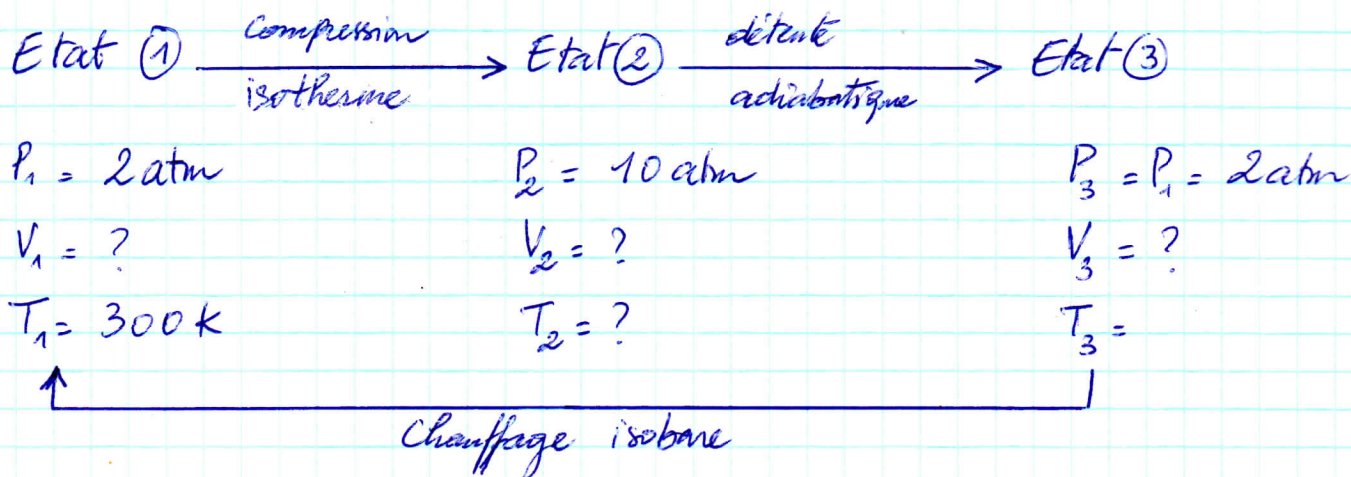 Etat ① compression isotherme Etat ② détente adiabatique Etat ③
P₁ = 2 atm P₂ = 10 atm P₃ = P₁ = 2 atm
V₁ = ? V₂ = ? V₃ = ?
T₁ = 300 K T₂ = ? T₃ =
Chauffage isobare